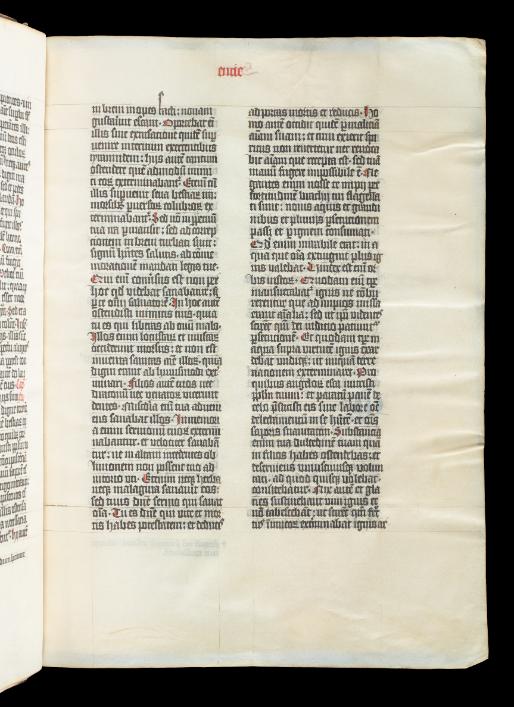 encie
in brem inopes facti: nouam
gustauerunt escam. Oportebat eni
illis sine excusatione quidem sup
uenire interitum exercentibus
tyrannidem: hiis autem tantum
ostendere quemadmodum inimi
ci eorum exterminabantur. Etenim cum
illis superuenit seua bestiarum ira:
morsibus peruersorum colubrorum ex
terminabantur. Sed non in perpetuum
ira tua permansit: sed ad correp
tionem in breui turbati sunt:
signum habentes salutis ad comme
morationem mandati legis tue.
Qui enim conuersus est non per
hoc quod videbat sanabatur: sed
per te omnium saluatorem. In hoc autem
ostendisti inimicis nostris quia
tu es qui liberas ab omni malo.
Illos enim locustarum et muscarum
occiderunt morsus: et non est
inuenta sanitas anime illorum: quia
digni erant ab huiusmodi exter
minari. Filios autem tuos nec
draconum venenatorum vicerunt
dentes. Misericordia enim tua adueniens
sanabat illos. In memoria
enim sermonum tuorum exami
nabantur et velociter saluaban
tur: ne in altam incidentes ob
liuionem non possent tuo ad
iutorio uti. Etenim neque herba
neque malagma sanauit eos:
sed tuus domine sermo qui sanat
omnia. Tu es domine qui vite et mor
tis habes potestatem: et deducis
ad portas mortis et reducis. Ho
mo autem occidit quidem per maliciam
animam suam: et cum exierit spi
ritus non reuertetur nec reuoca
bit animam que recepta est: sed tuam
manum fugere impossibile est. Ne
gantes enim nosse te impii per
fortitudinem brachii tui flagella
ti sunt: nouis aquis et grandi
nibus et pluuiis persecutionem
passi et per ignem consumpti.
Quod enim mirabile erat: in a
qua que omnia extinguit plus ig
nis valebat. Vindex est enim or
bis iustorum. Quodam enim tempore
mansuetabatur ignis ne comburerentur
que ad impios missa
erant animalia: sed ut ipsi videntes
scirent quoniam dei iudicio patiuntur
persecutionem. Et quodam tempore in
aqua supra virtutem ignis exar
debat undique: ut iniquam terre
nationem exterminaret. Pro
quibus angelorum esca nutristi
populum tuum: et paratum panem de
celo prestitisti eis sine labore omne
delectamentum in se habentem: et omnis
saporis suauitatem. Substantia
enim tua dulcedinem tuam quam
in filios habes ostendebat: et
deseruiens uniuscuiusque volun
tati: ad quod quisque volebat
conuertebatur. Nix autem et gla
cies sustinebant vim ignis et
non tabescebant: ut scirent quoniam fruc
tus inimicorum exterminabat ignis ar